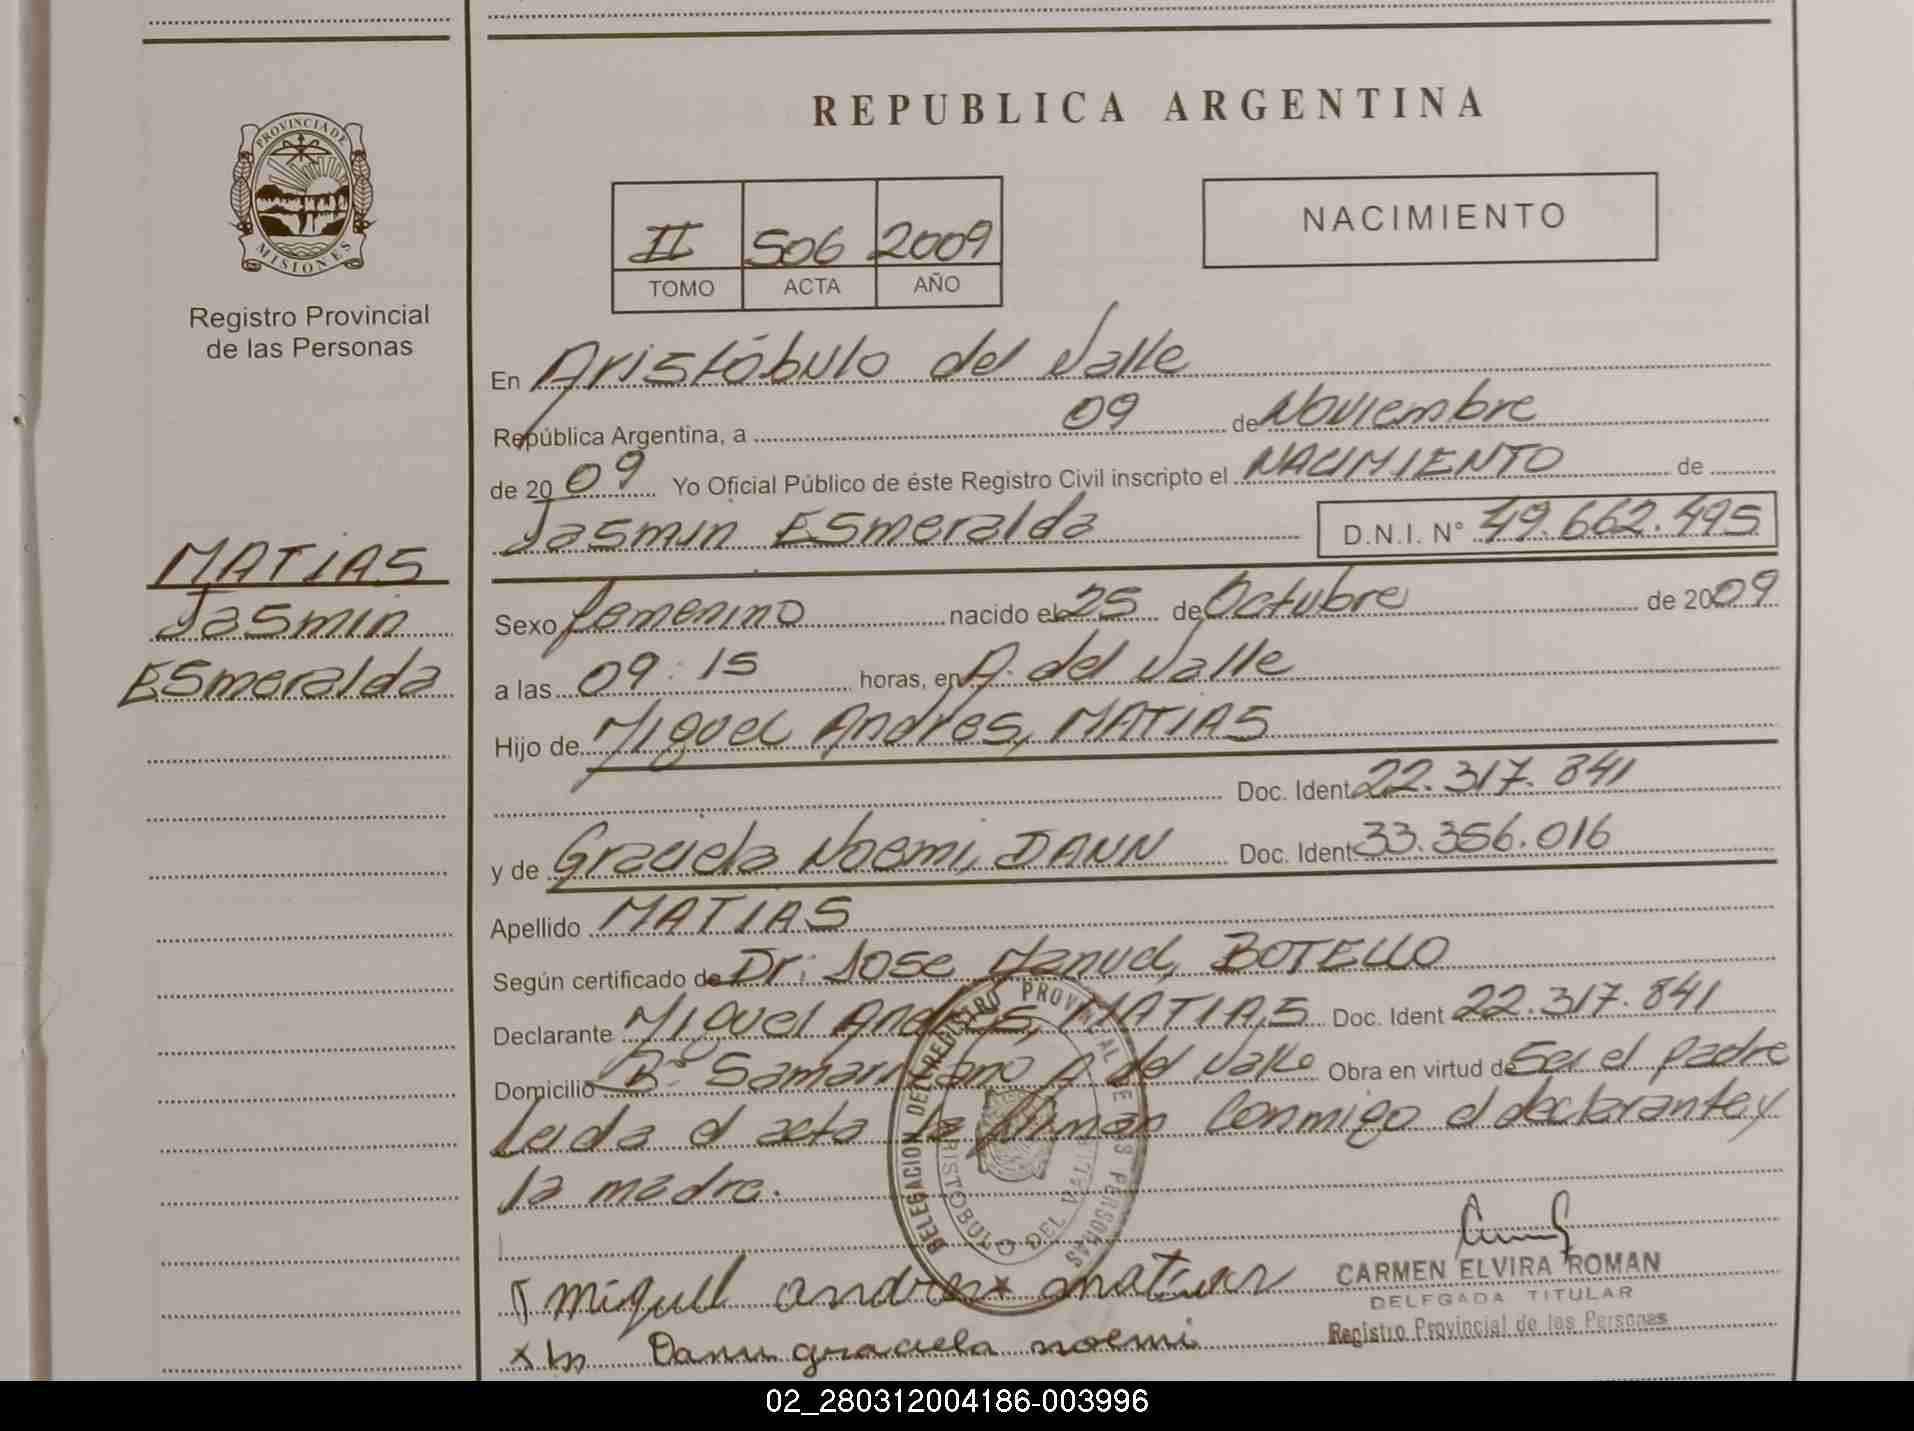 REPUBLICA ARGENTINA
PROVINCIA DE
MISIONES
Registro Provincial
de las Personas
II 506 2009
TOMO ACTA AÑO
NACIMIENTO
En Aristóbulo del Valle
República Argentina, a 09 de Noviembre
de 2009 Yo Oficial Público de éste Registro Civil inscripto el NACIMIENTO de
Jasmin Esmeralda D.N.I. N° 49.662.495
MATIAS
Jasmin
Esmeralda
Sexo femenino nacido el 25 de Octubre de 2009
a las 09:15 horas, en A. del Valle
Hijo de Miguel Andres, MATIAS
Doc. Ident 22.317.841
y de Graciela Noemi, DANN Doc. Ident 33.356.016
Apellido MATIAS
Según certificado de Dr: Jose Manuel, BOTELLO
Declarante Miguel Andres, MATIAS Doc. Ident 22.317.841
Domicilio B° Samaritano A del Valle Obra en virtud de Ser el padre
Leida el acta la firman Conmigo el declarante y
la madre.
DELEGACION DEL REGISTRO PROVINCIAL DE LAS PERSONAS
ARISTOBULO DEL VALLE
miguel andres matias
Dann graciela noemi
CARMEN ELVIRA ROMAN
DELEGADA TITULAR
Registro Provincial de las Personas
02_280312004186-003996